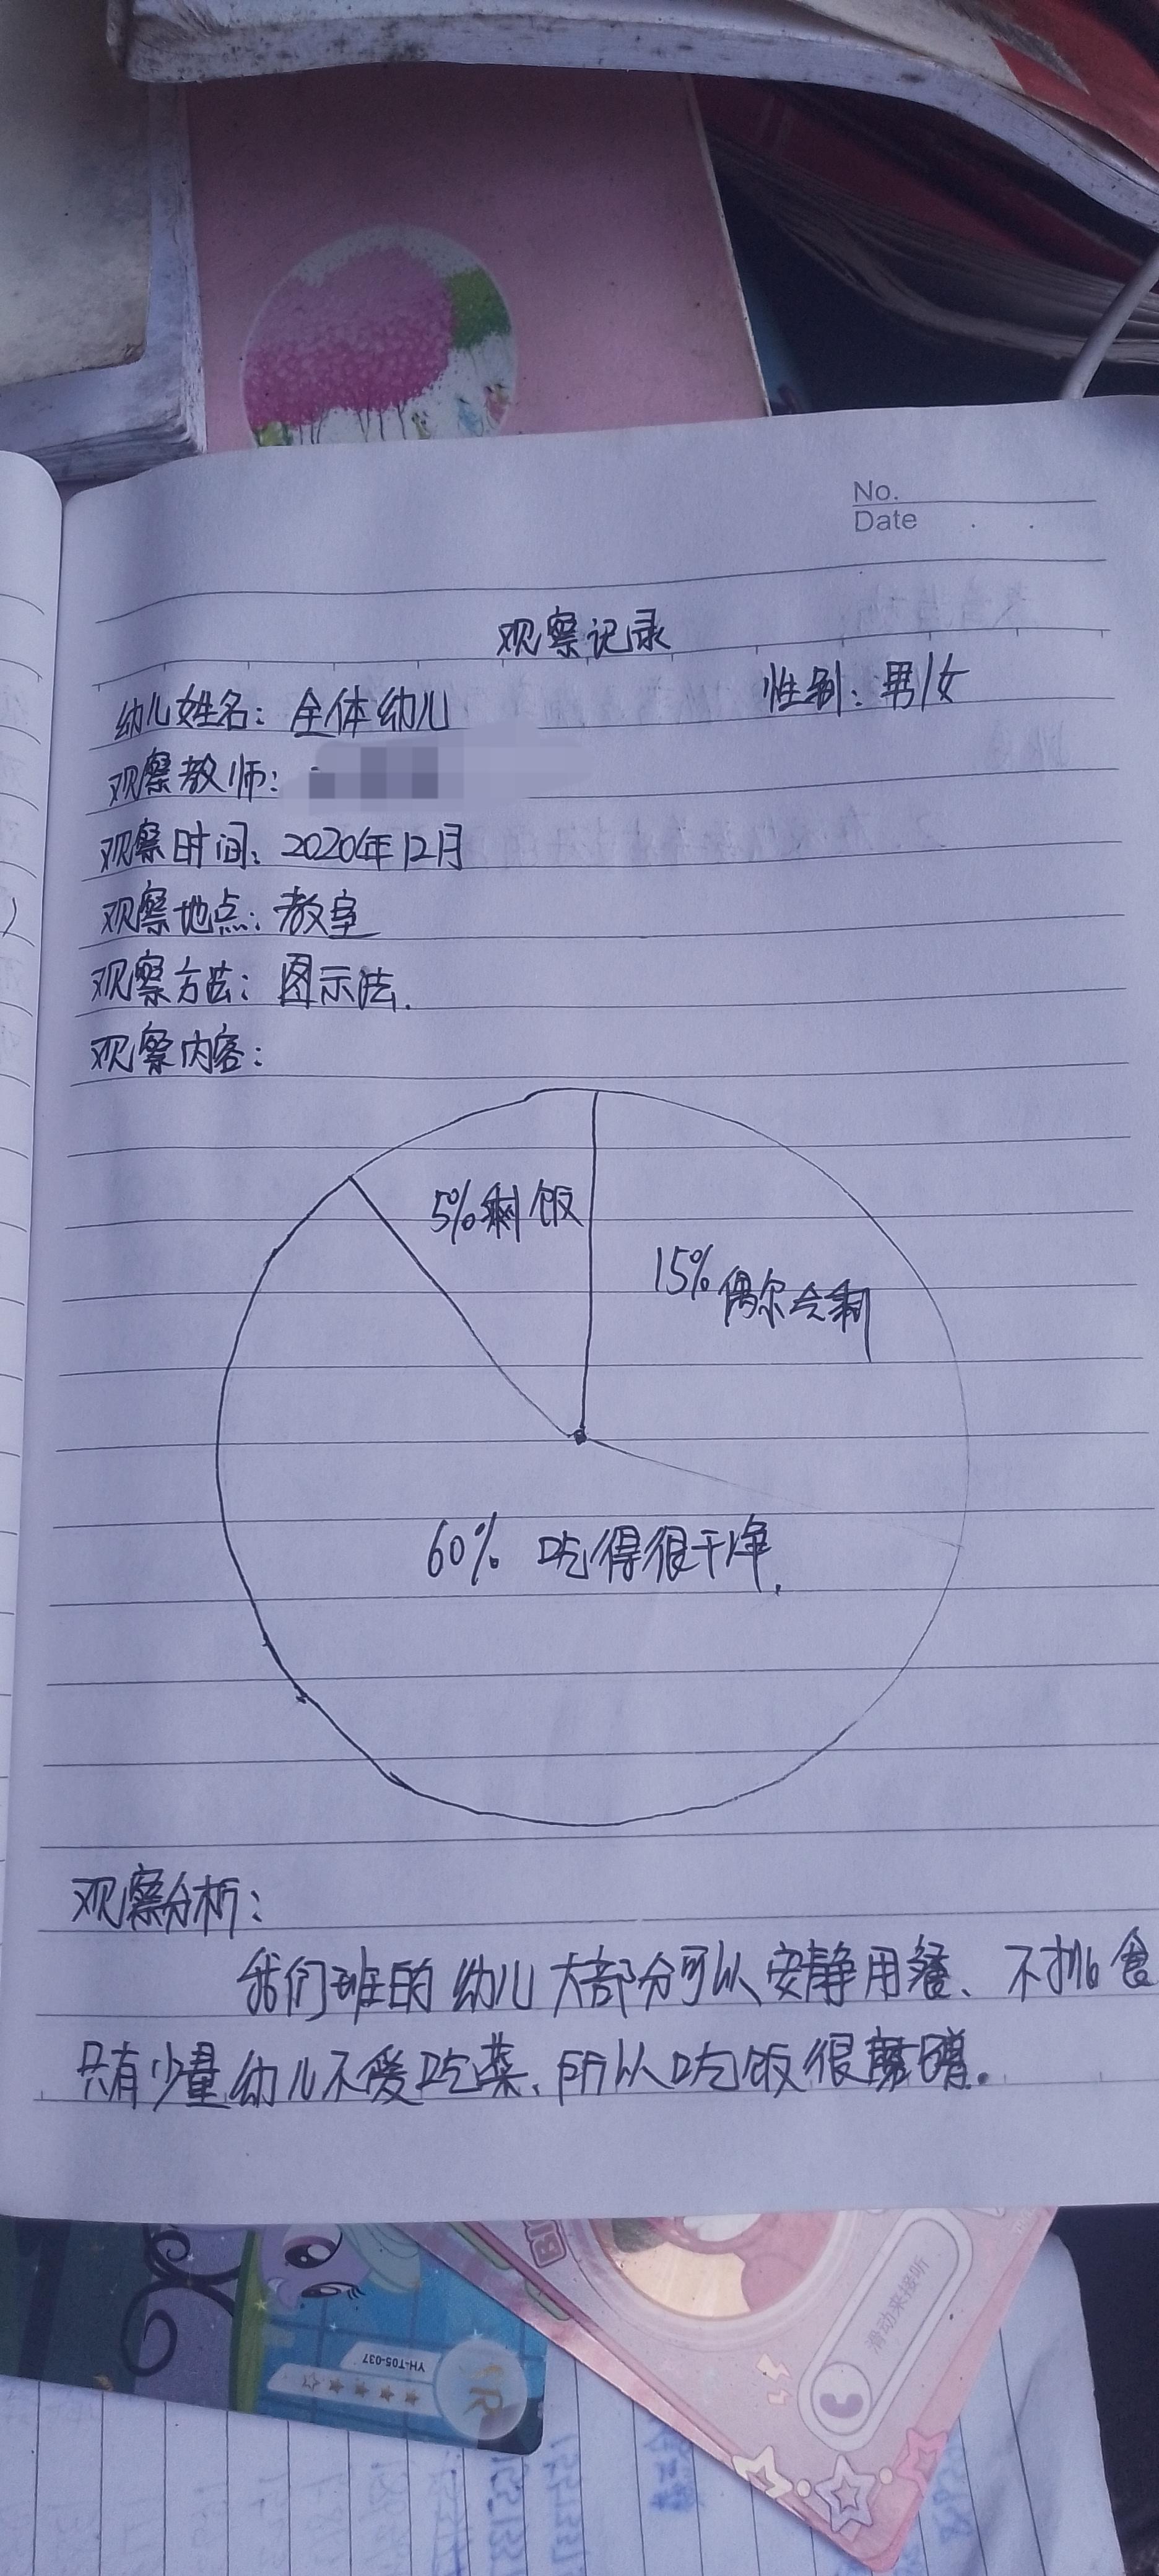 No.
Date
观察记录
幼儿姓名：全体幼儿 性别：男/女
观察教师：
观察时间：2020年12月
观察地点：教室
观察方法：图示法.
观察内容：
5%剩饭
15%偶尔会剩
60% 吃得很干净.
观察分析：
我们班的幼儿大部分可以安静用餐、不挑食
只有少量幼儿不爱吃菜、所以吃饭很磨蹭。
滑动来接听
YH-T05-037
R